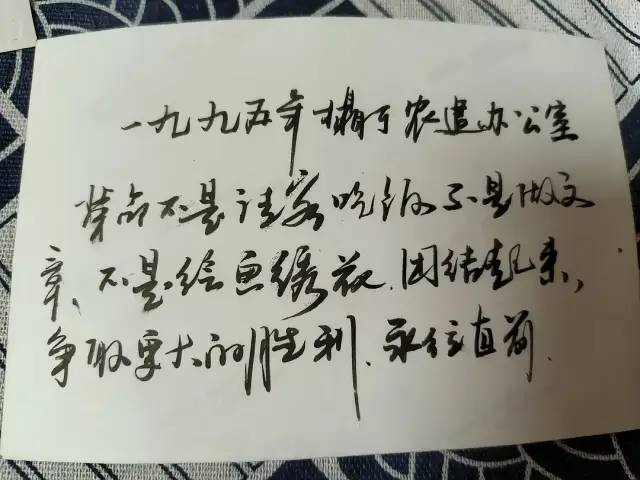 一九九五年摄于农遣办公室
革命不是请客吃饭不是做文
章、不是绘画绣花.团结起来,
争取更大的胜利.永往直前.